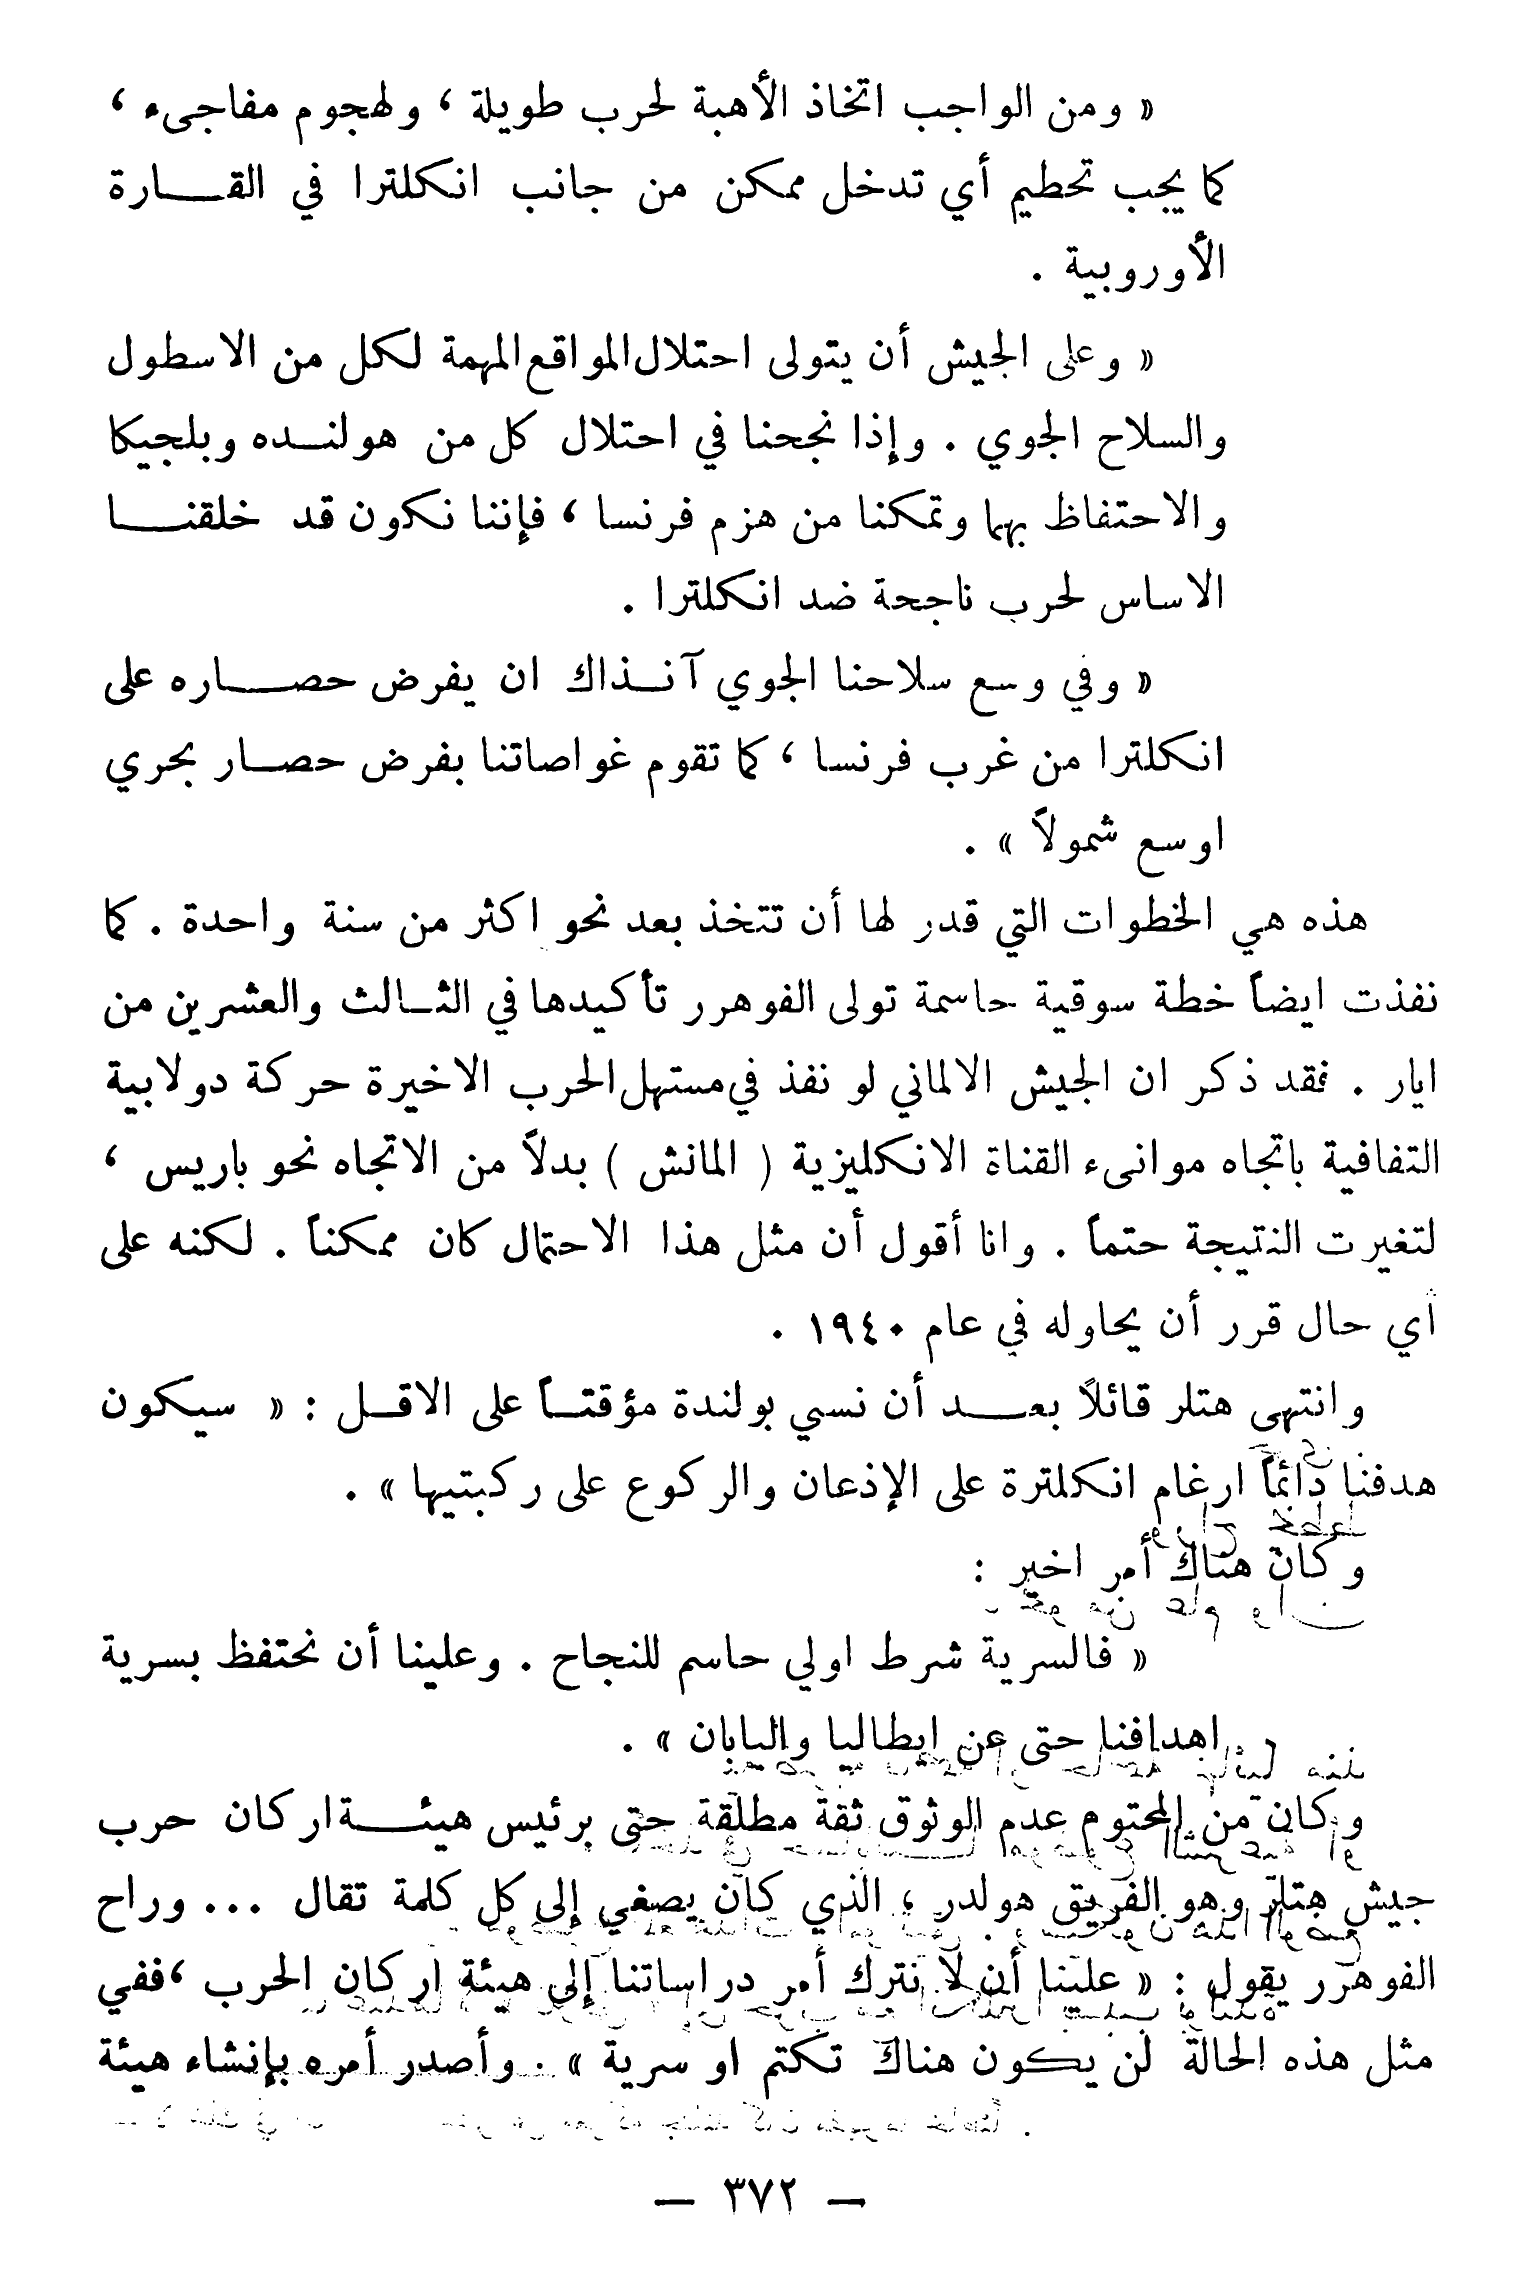 « ومن الواجب اتخاذ الأهبة لحرب طويلة ، ولهجوم مفاجىء ،
كما يجب تحطيم أي تدخل ممكن من جانب انكلترا في القارة
الأوروبية .
« وعلى الجيش أن يتولى احتلال المواقع المهمة لكل من الاسطول
والسلاح الجوي . وإذا نجحنا في احتلال كل من هولنده وبلجيكا
والاحتفاظ بهما وتمكنا من هزم فرنسا ، فإننا نكون قد خلقنا
الاساس لحرب ناجحة ضد انكلترا .
« وفي وسع سلاحنا الجوي آنذاك ان يفرض حصاره على
انكلترا من غرب فرنسا ، كما تقوم غواصاتنا بفرض حصار بحري
اوسع شمولاً » .
هذه هي الخطوات التي قدر لها أن تتخذ بعد نحو اكثر من سنة واحدة . كما
نفذت ايضاً خطة سوقية حاسمة تولى الفوهرر تأكيدها في الثالث والعشرين من
ايار . فقد ذكر ان الجيش الالماني لو نفذ في مستهل الحرب الاخيرة حركة دولابية
التفافية باتجاه موانىء القناة الانكليزية ( المانش ) بدلاً من الاتجاه نحو باريس ،
لتغيرت النتيجة حتماً . وانا أقول أن مثل هذا الاحتمال كان ممكناً . لكنه على
أي حال قرر أن يحاوله في عام ١٩٤٠ .
وانتهى هتلر قائلاً بعد أن نسي بولندة مؤقتاً على الاقل : « سيكون
هدفنا دائماً ارغام انكلترة على الإذعان والركوع على ركبتيها » .
وكان هناك أمر اخير :
« فالسرية شرط اولي حاسم للنجاح . وعلينا أن نحتفظ بسرية
اهدافنا حتى عن إيطاليا واليابان » .
وكان من المحتوم عدم الوثوق ثقة مطلقة حتى برئيس هيئة اركان حرب
جيش هتلر وهو الفريق هولدر ، الذي كان يصغي إلى كل كلمة تقال ... وراح
الفوهرر يقول : « علينا أن لا نترك أمر دراساتنا إلى هيئة اركان الحرب ، ففي
مثل هذه الحالة لن يكون هناك تكتم او سرية » . وأصدر أمره بإنشاء هيئة
— ٣٧٢ —